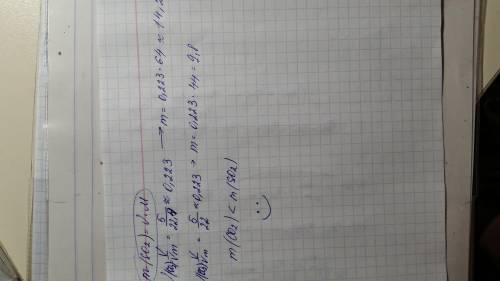 m(SO₂) = ν·M
V/Vm = 5/22,4 ≈ 0,223 → m = 0,223·64 ≈ 14,2
V/Vm = 5/22 ≈ 0,223 → m = 0,223·44 = 9,8
m(CO₂) < m(SO₂)